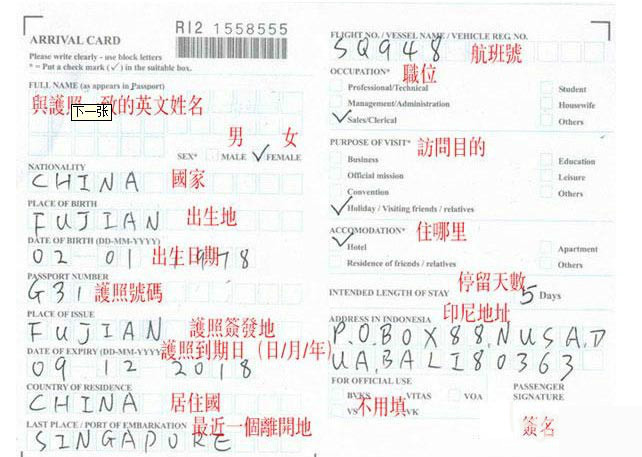 ARRIVAL CARD
RI2 1558555
Please write clearly - use block letters
* = Put a check mark (✓) in the suitable box.
FULL NAME (as appears in Passport)
與護照一致的英文姓名
下一张
男 女
SEX* MALE ✓ FEMALE
NATIONALITY
CHINA 國家
PLACE OF BIRTH
FUJIAN 出生地
DATE OF BIRTH (DD-MM-YYYY)
02 01 1978 出生日期
PASSPORT NUMBER
G31 護照號碼
PLACE OF ISSUE
FUJIAN 護照簽發地
DATE OF EXPIRY (DD-MM-YYYY) 護照到期日（日/月/年）
09 12 2018
COUNTRY OF RESIDENCE
CHINA 居住國
LAST PLACE / PORT OF EMBARKATION 最近一個離開地
SINGAPORE
FLIGHT NO. / VESSEL NAME / VEHICLE REG. NO.
SQ948 航班號
OCCUPATION* 職位
Professional/Technical Student
Management/Administration Housewife
✓ Sales/Clerical Others
PURPOSE OF VISIT* 訪問目的
Business Education
Official mission Leisure
Convention Others
✓ Holiday / Visiting friends / relatives
ACCOMODATION* 住哪里
✓ Hotel Apartment
Residence of friends / relatives Others
停留天數
INTENDED LENGTH OF STAY 5 Days
ADDRESS IN INDONESIA 印尼地址
P.O.BOX88,NUSA.D
UA,BALI80363
FOR OFFICIAL USE PASSENGER
BVKS VITAS VOA SIGNATURE
VS VK
不用填
簽名